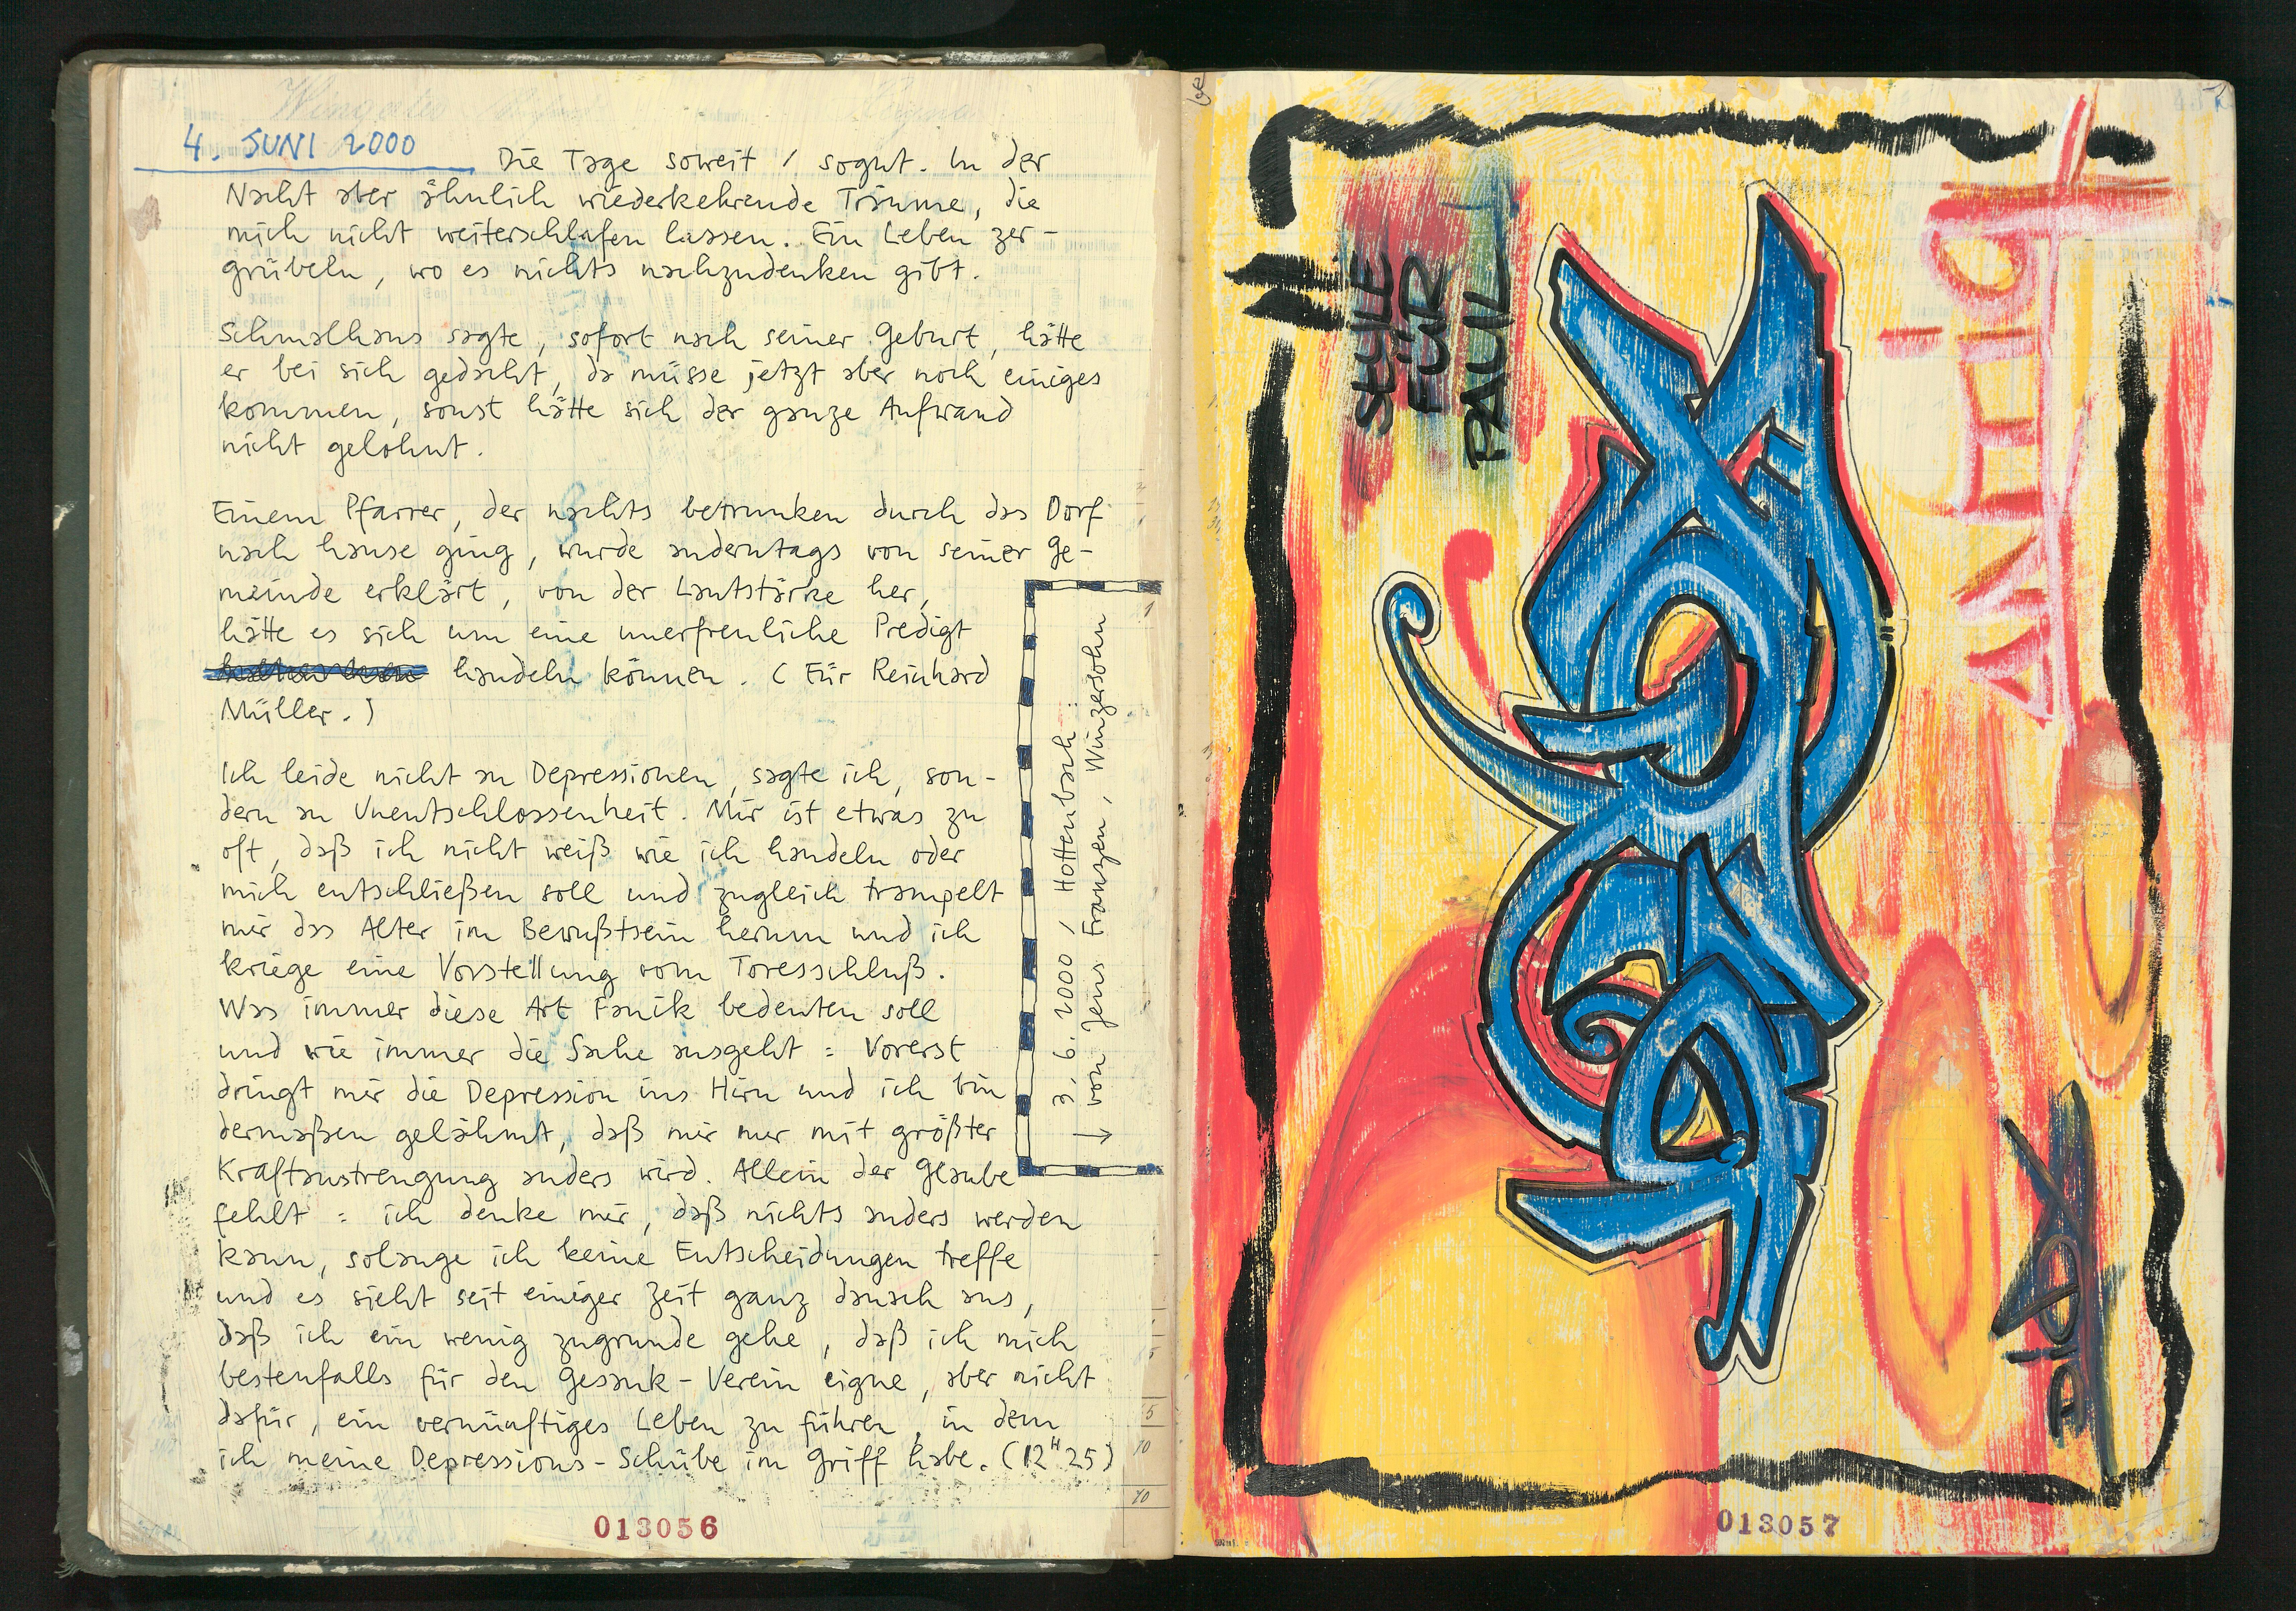 4. JUNI 2000 Die Tage soweit / sogut. In der
Nacht aber ähnlich wiederkehrende Träume, die
mich nicht weiterschlafen lassen. Ein Leben zer-
grübeln, wo es nichts nachzudenken gibt.
Schmalhans sagte, sofort nach seiner Geburt, hätte
er bei sich gedacht, da müsse jetzt aber noch einiges
kommen, sonst hätte sich der ganze Aufwand
nicht gelohnt.
Einem Pfarrer, der nachts betrunken durch das Dorf
nach hause ging, wurde anderntags von seiner Ge-
meinde erklärt, von der Lautstärke her,
hätte es sich um eine unerfreuliche Predigt
handeln können. (Für Reinhard
Müller.)
Ich leide nicht an Depressionen, sagte ich, son-
dern an Unentschlossenheit. Mir ist etwas zu
oft, daß ich nicht weiß wie ich handeln oder
mich entschließen soll und zugleich trampelt
mir das Alter im Bewußtsein herum und ich
kriege eine Vorstellung vom Toresschluß.
Was immer diese Art Panik bedeuten soll
und wie immer die Sache ausgeht : Vorerst
dringt mir die Depression ins Hirn und ich bin
dermaßen gelähmt, daß mir nur mit größter
Kraftanstrengung anders wird. Allein der Glaube
fehlt : ich denke mir, daß nichts anders werden
kann, solange ich keine Entscheidungen treffe
und es sieht seit einiger Zeit ganz danach aus,
daß ich ein wenig zugrunde gehe, daß ich mich
bestenfalls für den Gesank-Verein eigne, aber nicht
dafür, ein vernünftiges Leben zu führen, in dem
ich meine Depressions-Schübe im Griff habe. (12H25)
3. 6. 2000 / Hottenbach :
von Jens Franzen, Winzersohn
013056
STYLE
FÜR
PAUL
013057